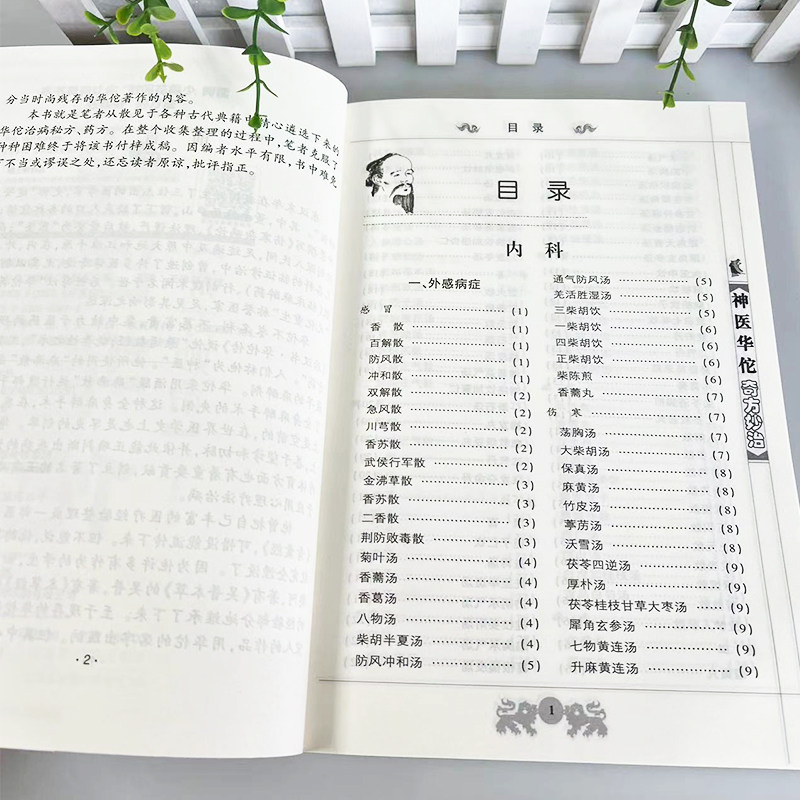 分当时尚残存的华佗著作的内容。
本书就是笔者从散见于各种古代典籍中精心遴选下来的
华佗治病秘方、药方。在整个收集整理的过程中，笔者克服了
种种困难终于将该书付梓成稿。因编者水平有限，书中难免
不当或谬误之处，还忘读者原谅，批评指正。
·2·
目录
目录
内科
一、外感病症
感冒 (1)
香散 (1)
百解散 (1)
防风散 (1)
冲和散 (1)
双解散 (2)
急风散 (2)
川芎散 (2)
香苏散 (2)
武侯行军散 (2)
金沸草散 (3)
香苏散 (3)
二香散 (3)
荆防败毒散 (3)
菊叶汤 (4)
香薷汤 (4)
香葛汤 (4)
八物汤 (4)
柴胡半夏汤 (4)
防风冲和汤 (5)
通气防风汤 (5)
羌活胜湿汤 (5)
三柴胡饮 (5)
一柴胡饮 (6)
四柴胡饮 (6)
正柴胡饮 (6)
柴陈煎 (6)
香薷丸 (7)
伤寒 (7)
荡胸汤 (7)
大柴胡汤 (7)
保真汤 (8)
麻黄汤 (8)
竹皮汤 (8)
葶苈汤 (8)
沃雪汤 (8)
茯苓四逆汤 (9)
厚朴汤 (9)
茯苓桂枝甘草大枣汤 (9)
犀角玄参汤 (9)
七物黄连汤 (9)
升麻黄连汤 (9)
神医华佗奇方妙治
1